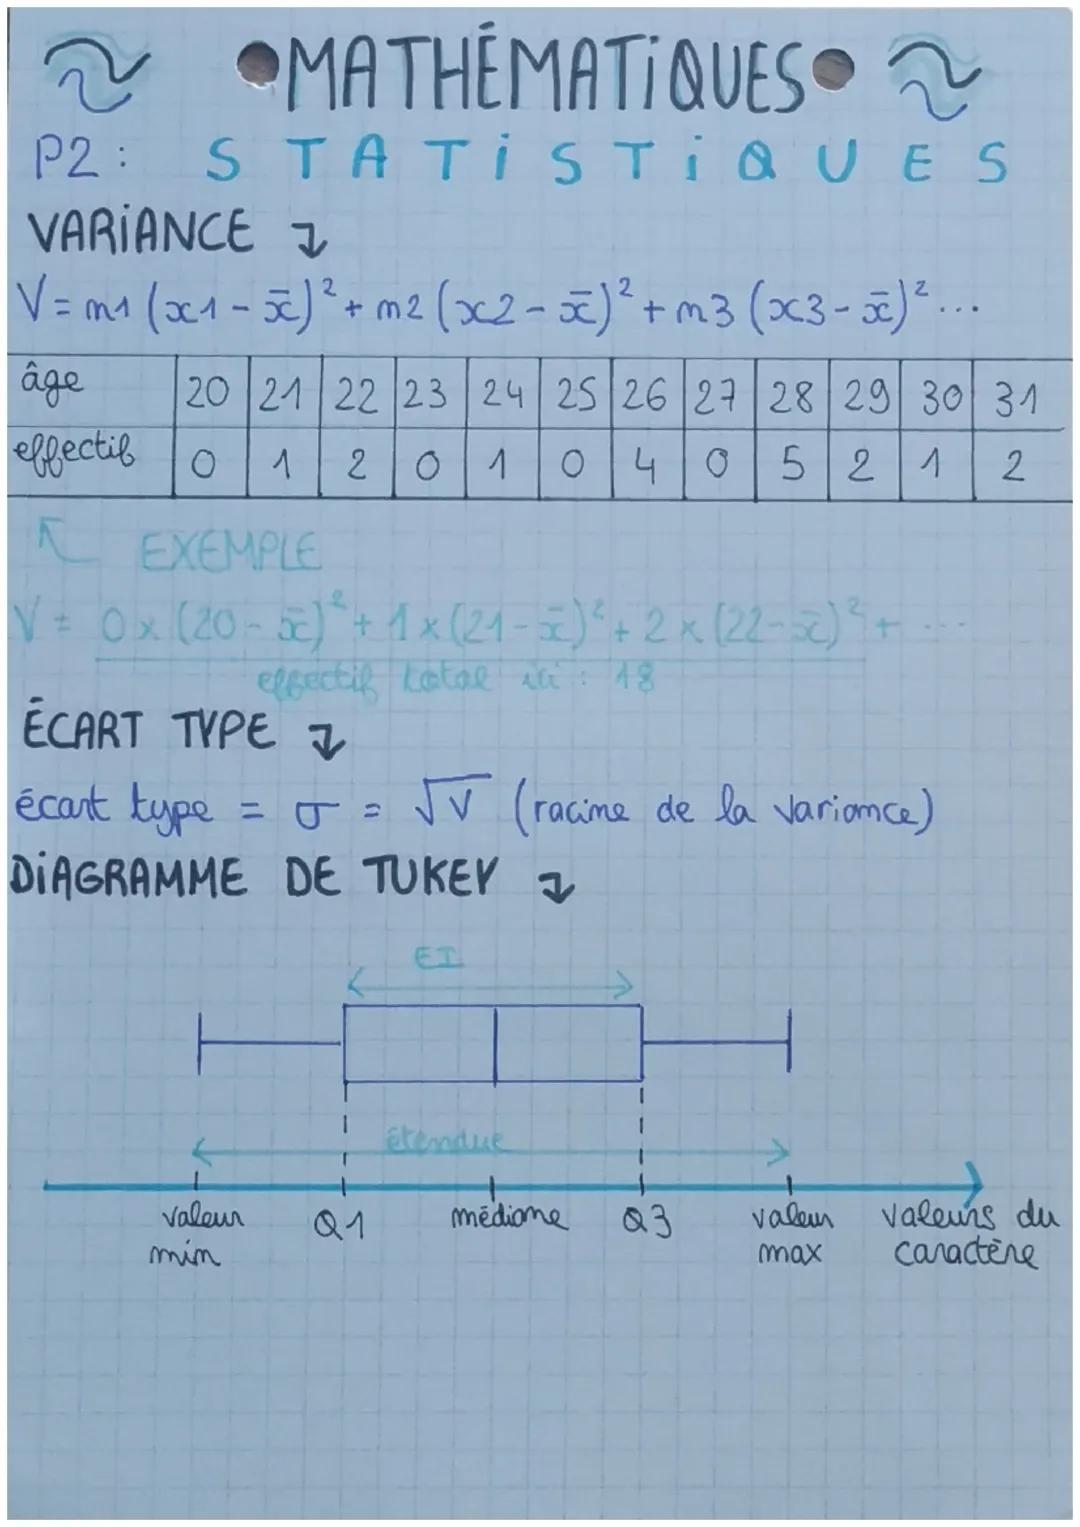 •MATHÉMATIQUES•
P2: STATISTIQUES
VARIANCE ↴
V = n1 (x1 - x̄)² + n2 (x2 - x̄)² + n3 (x3 - x̄)² ...
âge 20 21 22 23 24 25 26 27 28 29 30 31
effectif 0 1 2 0 1 0 4 0 5 2 1 2
↖ EXEMPLE
V = 0 x (20 - x̄)² + 1 x (21 - x̄)² + 2 x (22 - x̄)² + ...
effectif total ici : 18
ÉCART TYPE ↴
écart type = σ = √V (racine de la variance)
DIAGRAMME DE TUKEY ↴
EI
étendue
valeur min Q1 médiane Q3 valeur max valeurs du caractère